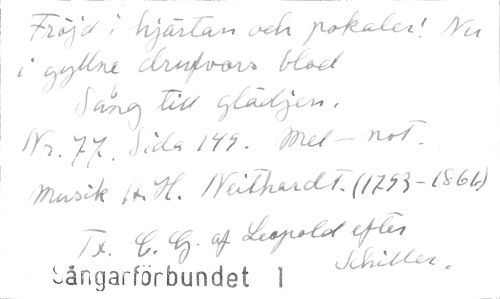 Fröjd i hjärtan och pokaler! Nu
i gyllne drufvors blod
Sång till glädjen.
Nr. 77. Sida 149. Mel-not.
Musik A. H. Neithardt. (1793-1861)
Tx. C. G. af Leopold efter
Schiller.
Sångarförbundet 1